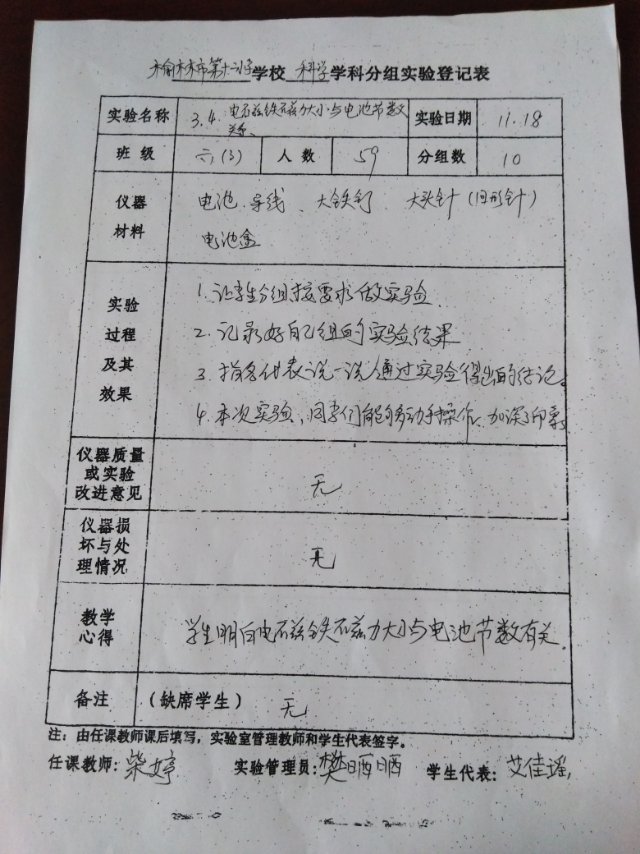 榆林市第十二小学学校 科学学科分组实验登记表
实验名称 3.4.电磁铁磁力大小与电池节数关系 实验日期 11.18
班级 六(3) 人数 59 分组数 10
仪器材料 电池.导线、大铁钉 大头针(回形针)
电池盒
实验过程及其效果 1.让学生分组按要求做实验.
2.记录好自己组的实验结果
3.指名代表说一说通过实验得出的结论。
4.本次实验、同学们能够动手操作、加深印象
仪器质量或实验改进意见 无
仪器损坏与处理情况 无
教学心得 学生明白电磁铁磁力大小与电池节数有关.
备注 (缺席学生) 无
注：由任课教师课后填写，实验室管理教师和学生代表签字。
任课教师：柴婷 实验管理员：樊晒晒 学生代表：艾佳瑶